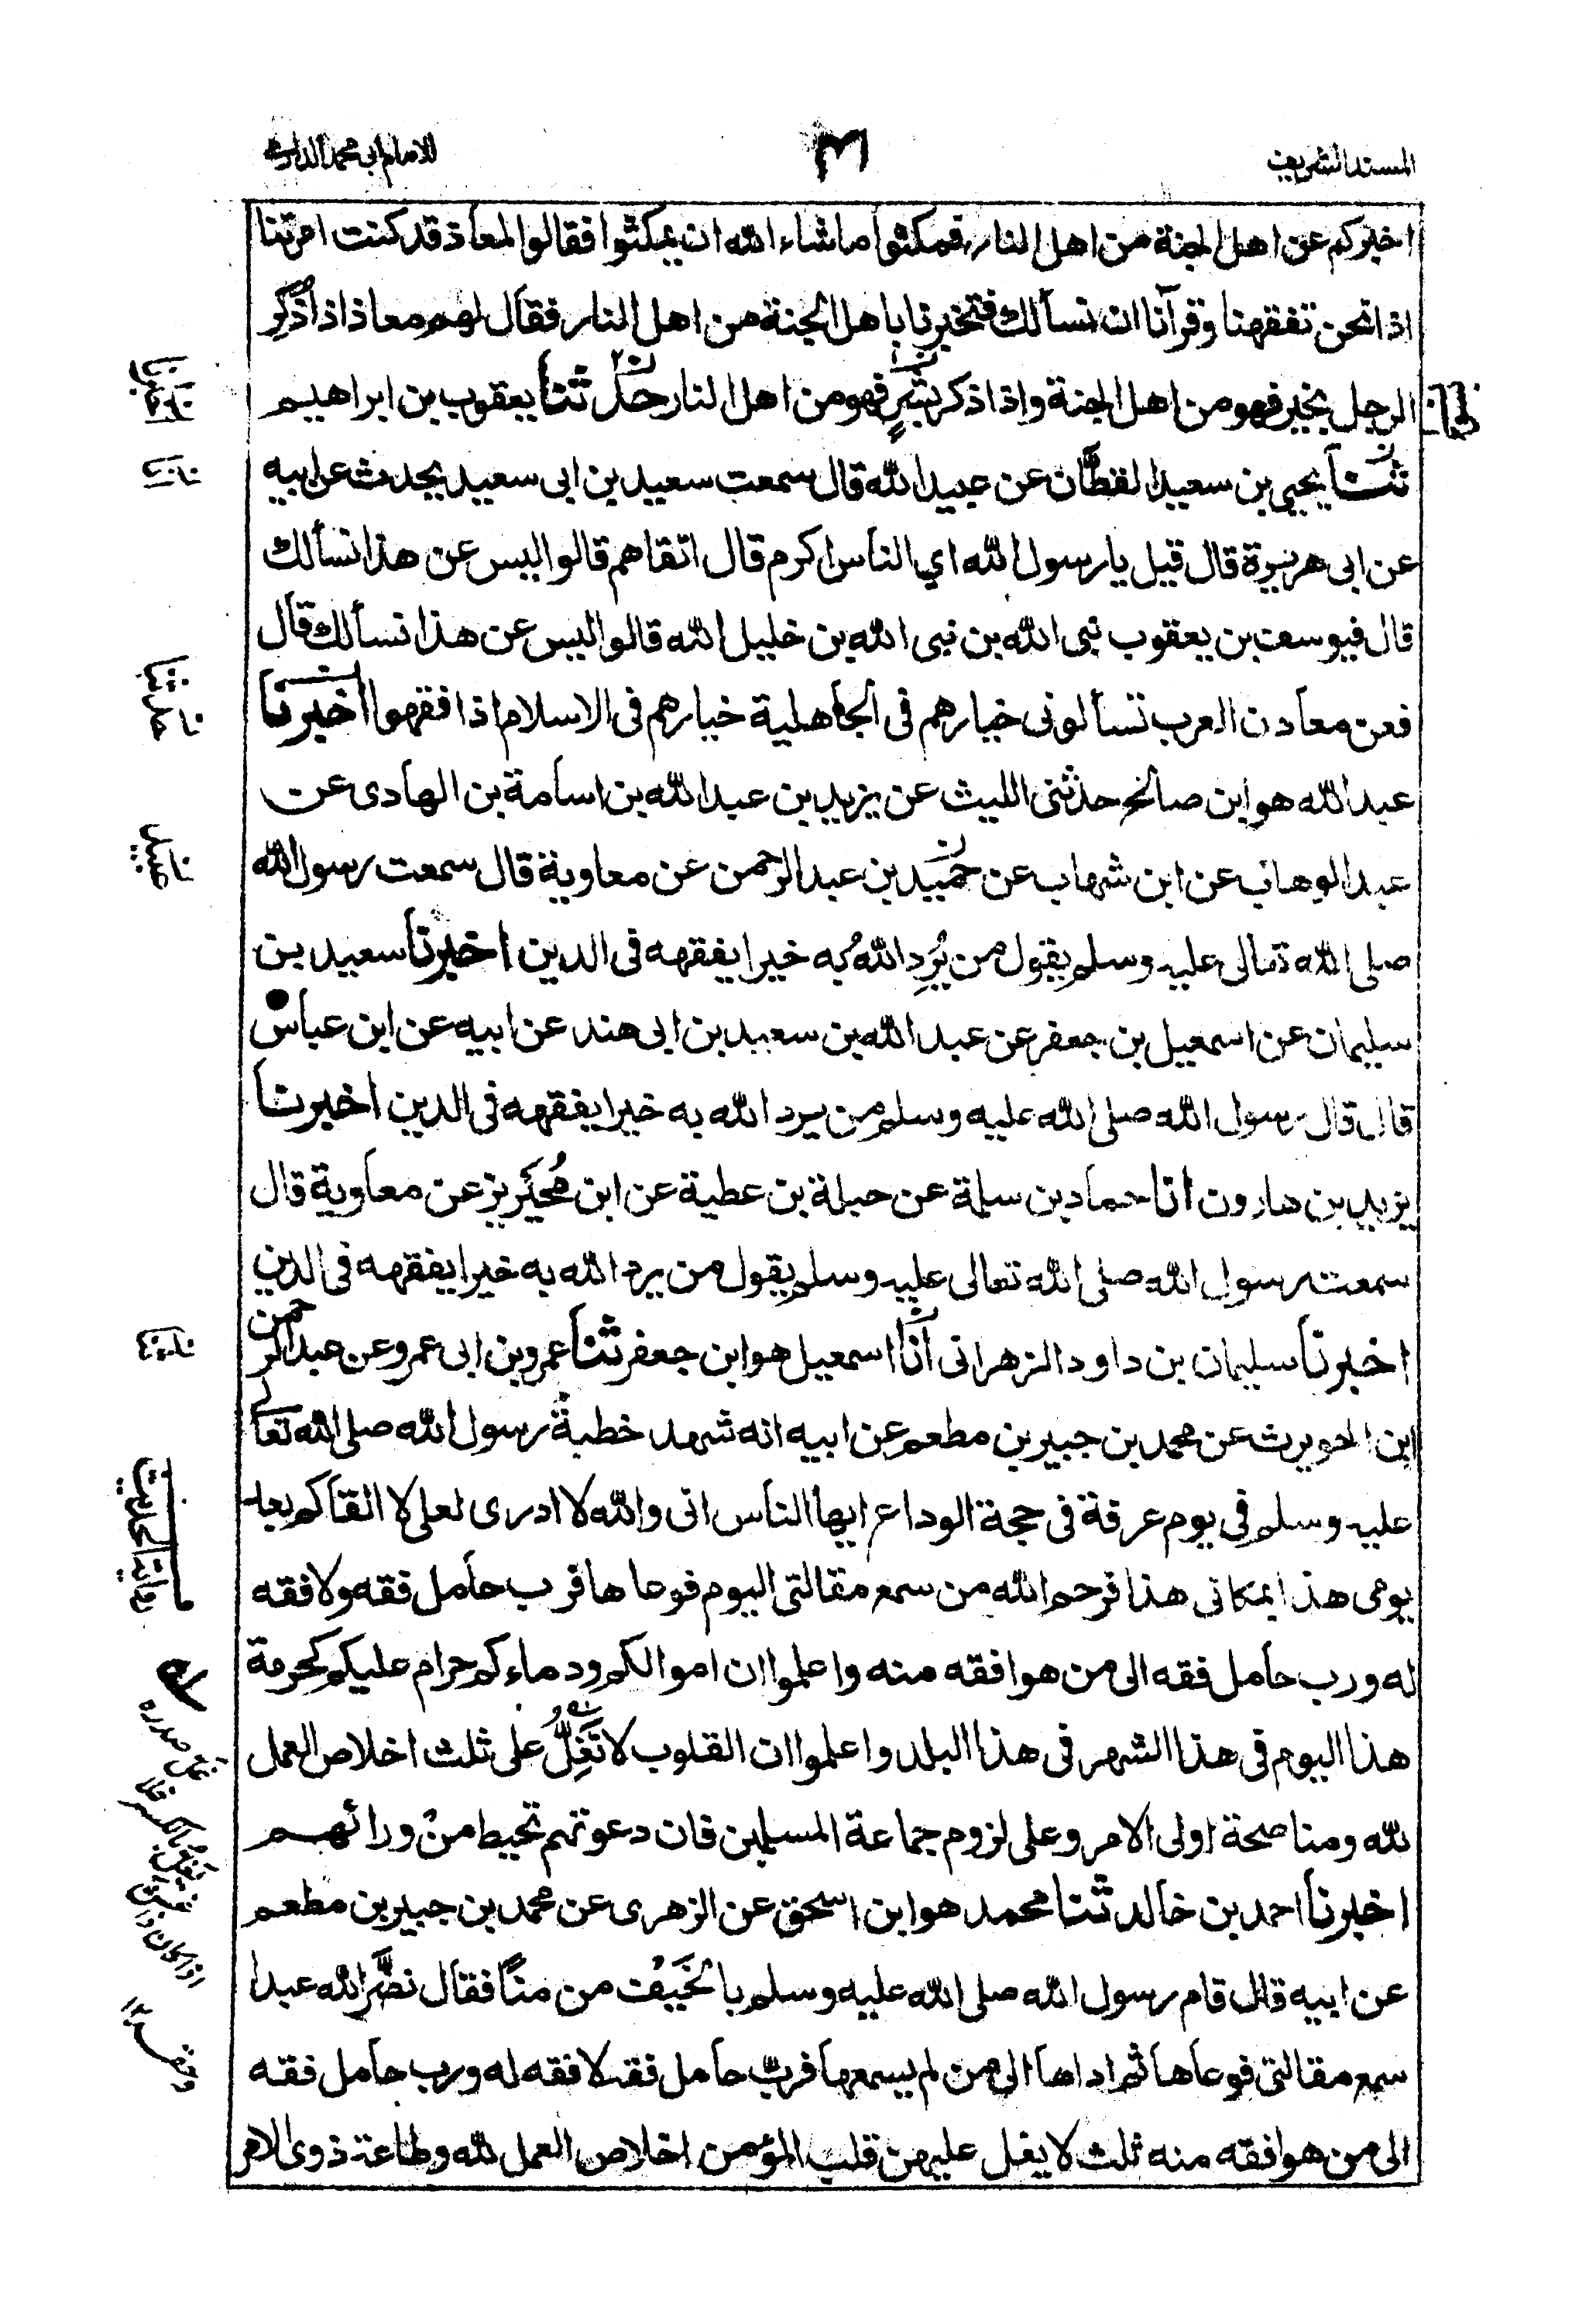 المسند الشريف
٣١
للامام ابى محمد الدارمى
اخبركم عن اهل الجنة من اهل النار فمكثوا ما شاء الله ان يمكثوا فقالوا لمعاذ قد كنت امرتنا
اذا نحن تفقهنا وقرآنا ان نسألك فتخبرنا باهل الجنة من اهل النار فقال لهم معاذ اذا ذُكِر
الرجل بخير فهو من اهل الجنة واذا ذكر بشرٍ فهو من اهل النار حدثنا يعقوب بن ابراهيم
ثنا يحيى بن سعيد القطان عن عبيد الله قال سمعت سعيد بن ابى سعيد يحدث عن ابيه
عن ابى هريرة قال قيل يا رسول الله اي الناس اكرم قال اتقاهم قالوا ليس عن هذا نسألك
قال فيوسف بن يعقوب نبى الله بن نبى الله بن خليل الله قالوا ليس عن هذا نسألك قال
فعن معادن العرب تسألونى خيارهم فى الجاهلية خيارهم فى الاسلام اذا فقهوا اخبرنا
عبد الله هو ابن صالح حدثنى الليث عن يزيد بن عبد الله بن اسامة بن الهادى عن
عبد الوهاب عن ابن شهاب عن حميد بن عبد الرحمن عن معاوية قال سمعت رسول الله
صلى الله تعالى عليه وسلم يقول من يُرِد اللهُ به خيرا يفقهه فى الدين اخبرنا سعيد بن
سليمان عن اسمعيل بن جعفر عن عبد الله بن سعيد بن ابى هند عن ابيه عن ابن عباس
قال قال رسول الله صلى الله عليه وسلم من يرد الله به خيرا يفقهه فى الدين اخبرنا
يزيد بن هارون انا حماد بن سلمة عن جبلة بن عطية عن ابن مُحَيريز عن معاوية قال
سمعت رسول الله صلى الله تعالى عليه وسلم يقول من يرد الله به خيرا يفقهه فى الدين
اخبرنا سليمان بن داود الزهرانى انا اسمعيل هو ابن جعفر ثنا عمرو بن ابى عمرو عن عبد الرحمن
ابن الحويرث عن محمد بن جبير بن مطعم عن ابيه انه شهد خطبة رسول الله صلى الله تعالى
عليه وسلم فى يوم عرفة فى حجة الوداع ايها الناس انى والله لا ادرى لعلى لا القاكم بعد
يومى هذا بمكانى هذا فرحم الله من سمع مقالتى اليوم فوعاها فرب حامل فقه ولا فقه
له ورب حامل فقه الى من هو افقه منه واعلموا ان اموالكم ودماءكم حرام عليكم كحرمة
هذا اليوم فى هذا الشهر فى هذا البلد واعلموا ان القلوب لا تَغِلُّ على ثلث اخلاص العمل
لله ومناصحة اولى الامر وعلى لزوم جماعة المسلمين فان دعوتهم تحيط من ورائهم
اخبرنا احمد بن خالد ثنا محمد هو ابن اسحق عن الزهرى عن محمد بن جبير بن مطعم
عن ابيه قال قام رسول الله صلى الله عليه وسلم بالخَيْف من منًا فقال نضَّر الله عبدا
سمع مقالتى فوعاها ثم اداها الى من لم يسمعها فربّ حامل فقه لا فقه له ورب حامل فقه
الى من هو افقه منه ثلث لا يغل عليهن قلب المؤمن اخلاص العمل لله وطاعة ذوى الامر